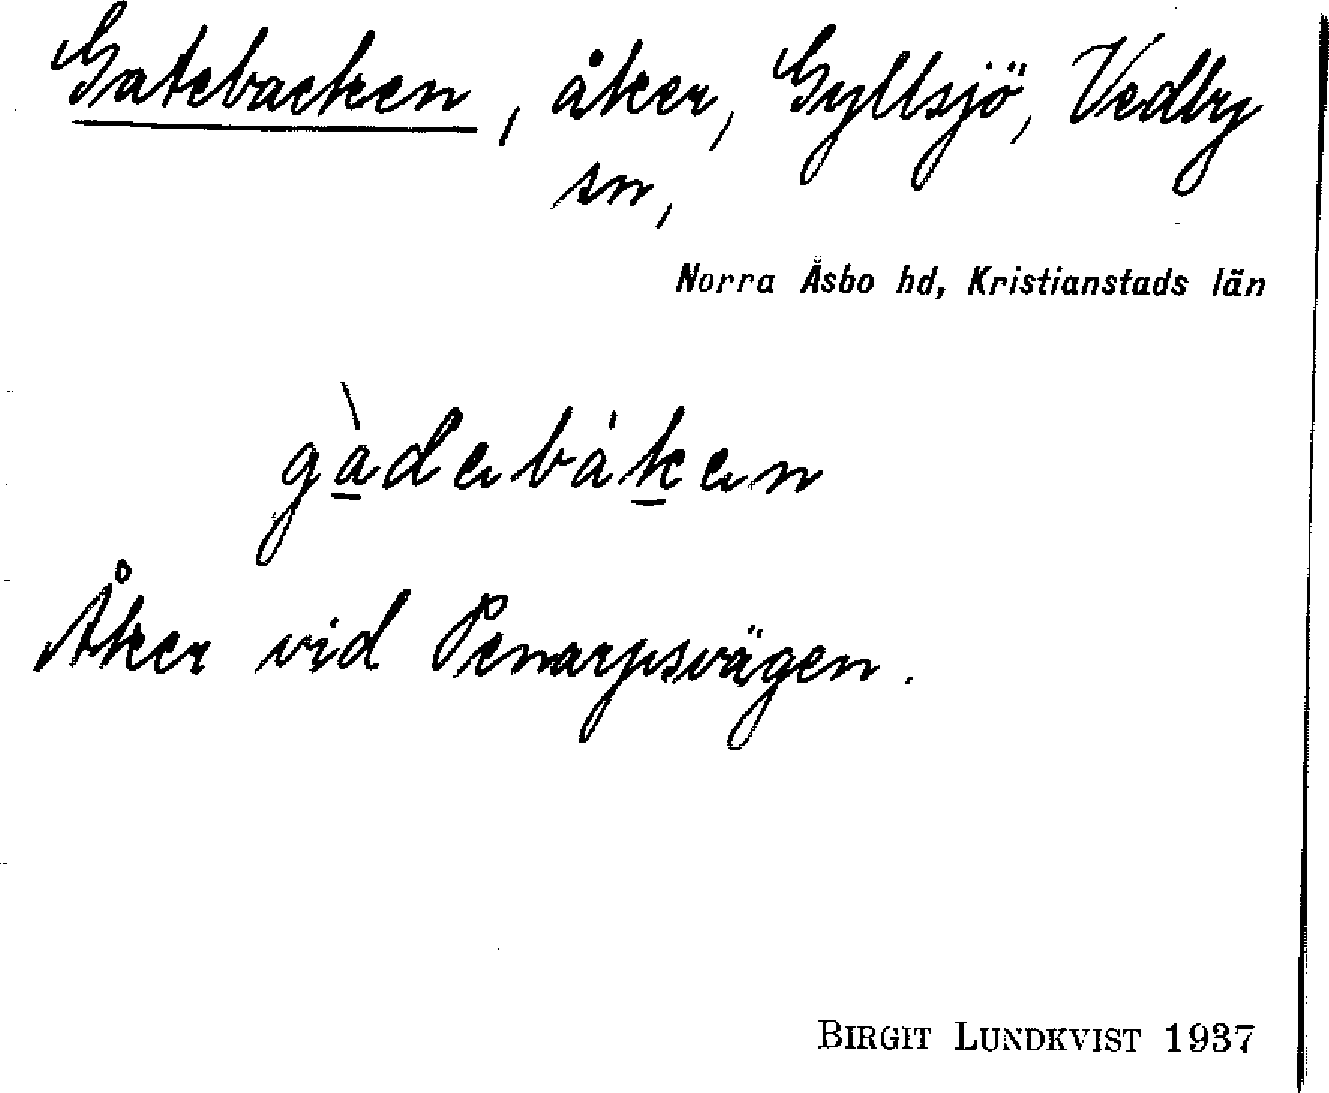 Gatebacken, åker, Gyllsjö, Vedby
sn,
Norra Åsbo hd, Kristianstads län
gàdebáken
Åker vid Penarpsvägen.
BIRGIT LUNDKVIST 1937